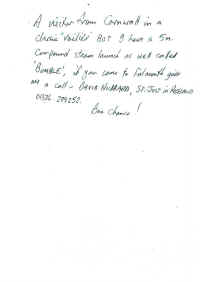 A visitor from Cornwall in a
classic 'varlet' BUT I have a 5m
Compound steam launch as well called
'BUMBLE', if you come to Falmouth give
me a call - DAVID HUBBARD, ST. JUST in ROSELAND
01326 279252.
Bon chance!